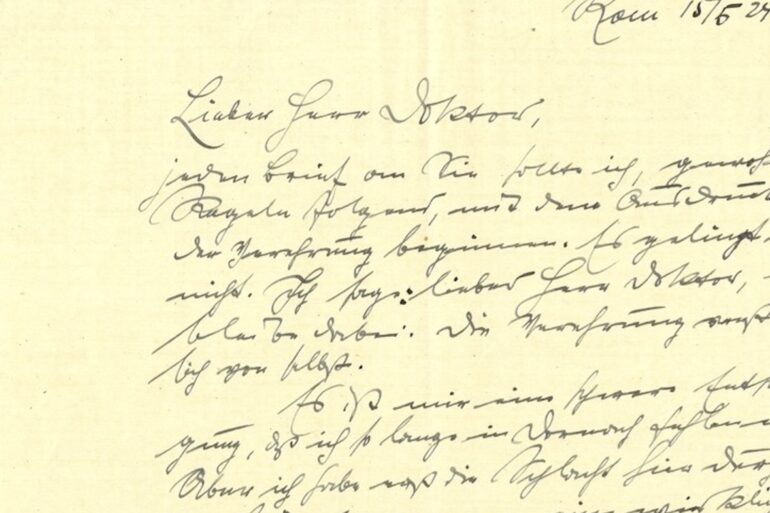 Rom 15/5 24
Lieber Herr Doktor,
jeden Brief an Sie sollte ich, gewoh
Regeln folgend, mit dem Ausdruck
der Verehrung beginnen. Es gelingt
nicht. Ich sage: lieber Herr Doktor,
bleibe dabei. Die Verehrung verst
sich von selbst.
Es ist mir eine schwere Ents
gung, daß ich so lange in Dornach fehlen
Aber ich habe erst die Schlacht hier